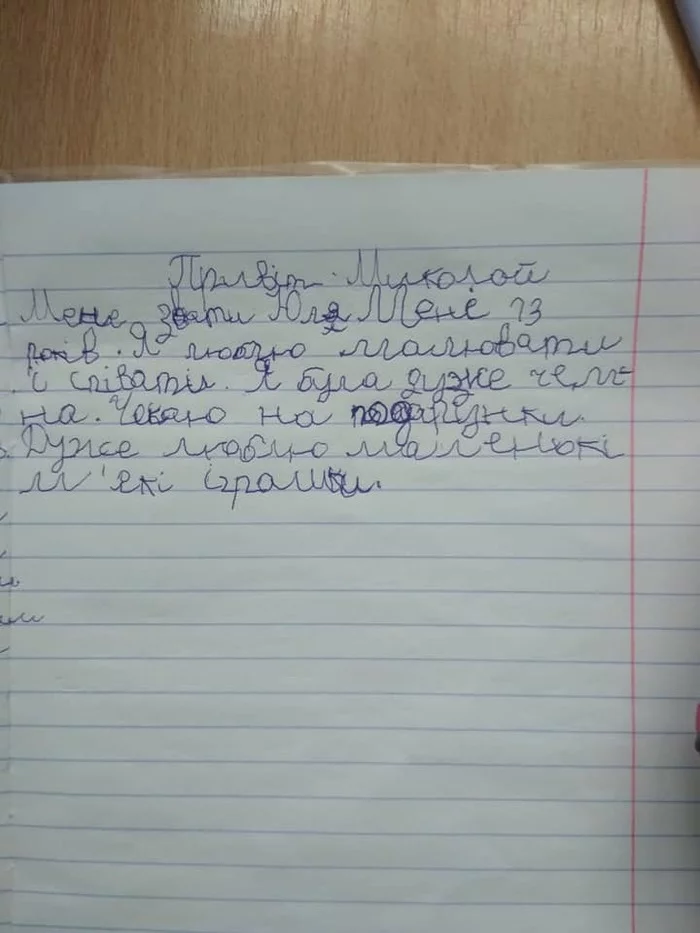 Привіт Миколай
Мене звати Юля Мені 13
років. Я люблю малювати
і співати. Я була дуже чем-
на. Чекаю на подарунки.
Дуже люблю маленькі
м'які іграшки.